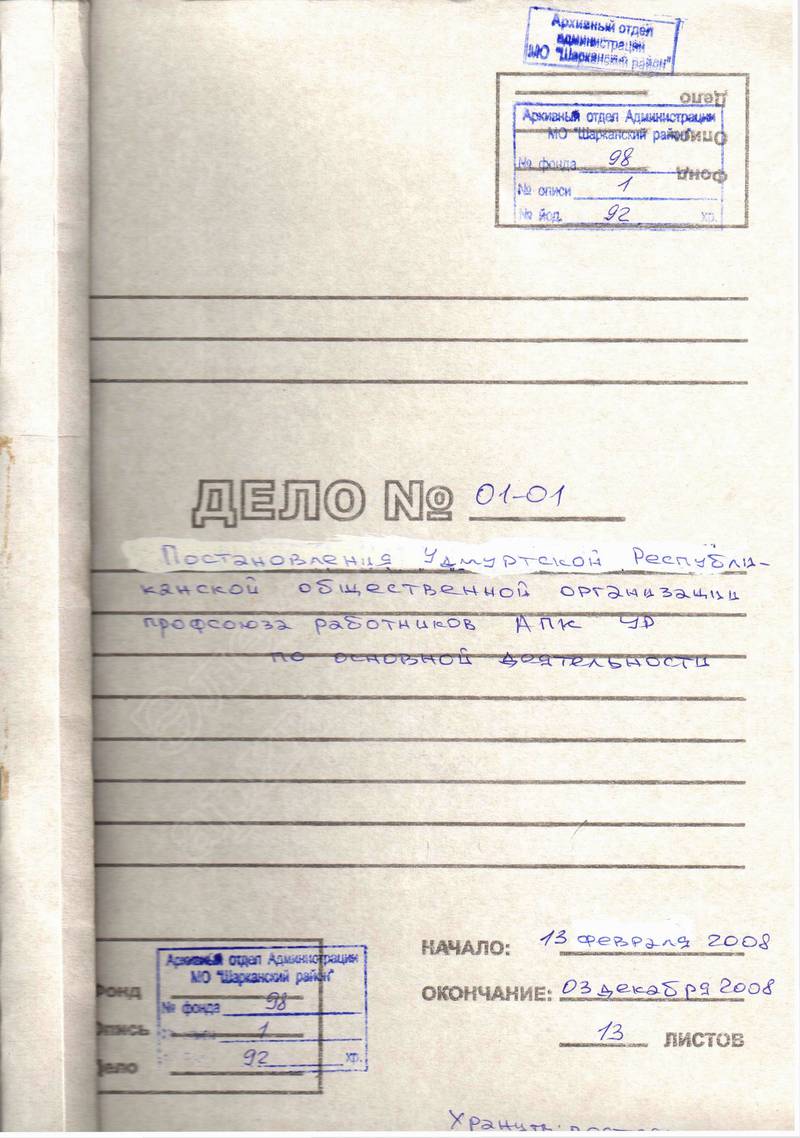 Архивный отдел
администрации
МО "Шарканский район"
Дело
Опись
Фонд
Архивный отдел Администрации
МО "Шарканский район"
№ фонда 98
№ описи 1
№ йод. 92 хр.
ДЕЛО № 01-01
Постановления Удмуртской Республи-
канской общественной организации
профсоюза работников АПК УР
по основной деятельности
НАЧАЛО: 13 февраля 2008
ОКОНЧАНИЕ: 03 декабря 2008
13 ЛИСТОВ
Фонд
Опись
Дело
Архивный отдел Администрации
МО "Шарканский район"
№ фонда 98
1
92 хр.
Хранить